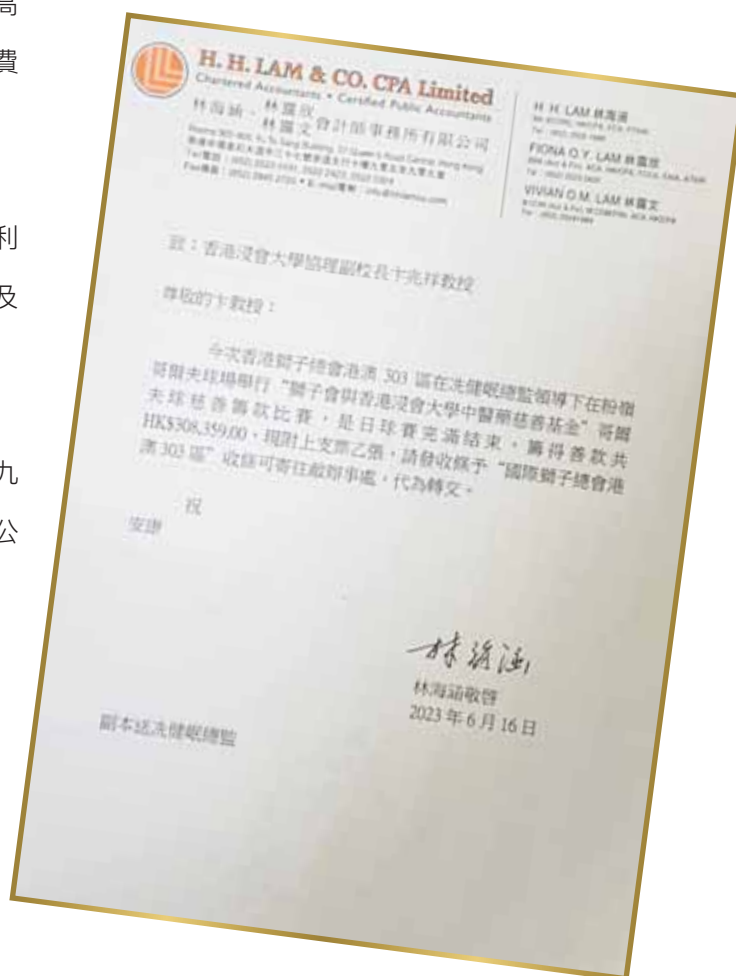 高
費
利
及
九
公
H. H. LAM & CO. CPA Limited
Chartered Accountants • Certified Public Accountants
林海涵、林靄欣
林靄文 會計師事務所有限公司
H. H. LAM 林海涵
FIONA O.Y. LAM 林靄欣
VIVIAN O.M. LAM 林靄文
致：香港浸會大學協理副校長卞兆祥教授
尊敬的卞教授：
今次香港獅子總會港澳 303 區在冼健岷總監領導下在粉嶺
哥爾夫球場舉行 “獅子會與香港浸會大學中醫藥慈善基金” 哥爾
夫球慈善籌款比賽，是日球賽完滿結束，籌得善款共
HK$308,359.00，現附上支票乙張，請發收條予 “國際獅子總會港
澳 303 區” 收條可寄往敝辦事處，代為轉交。
祝
安康
林海涵
林海涵敬啓
2023 年 6 月 16 日
副本送冼健岷總監